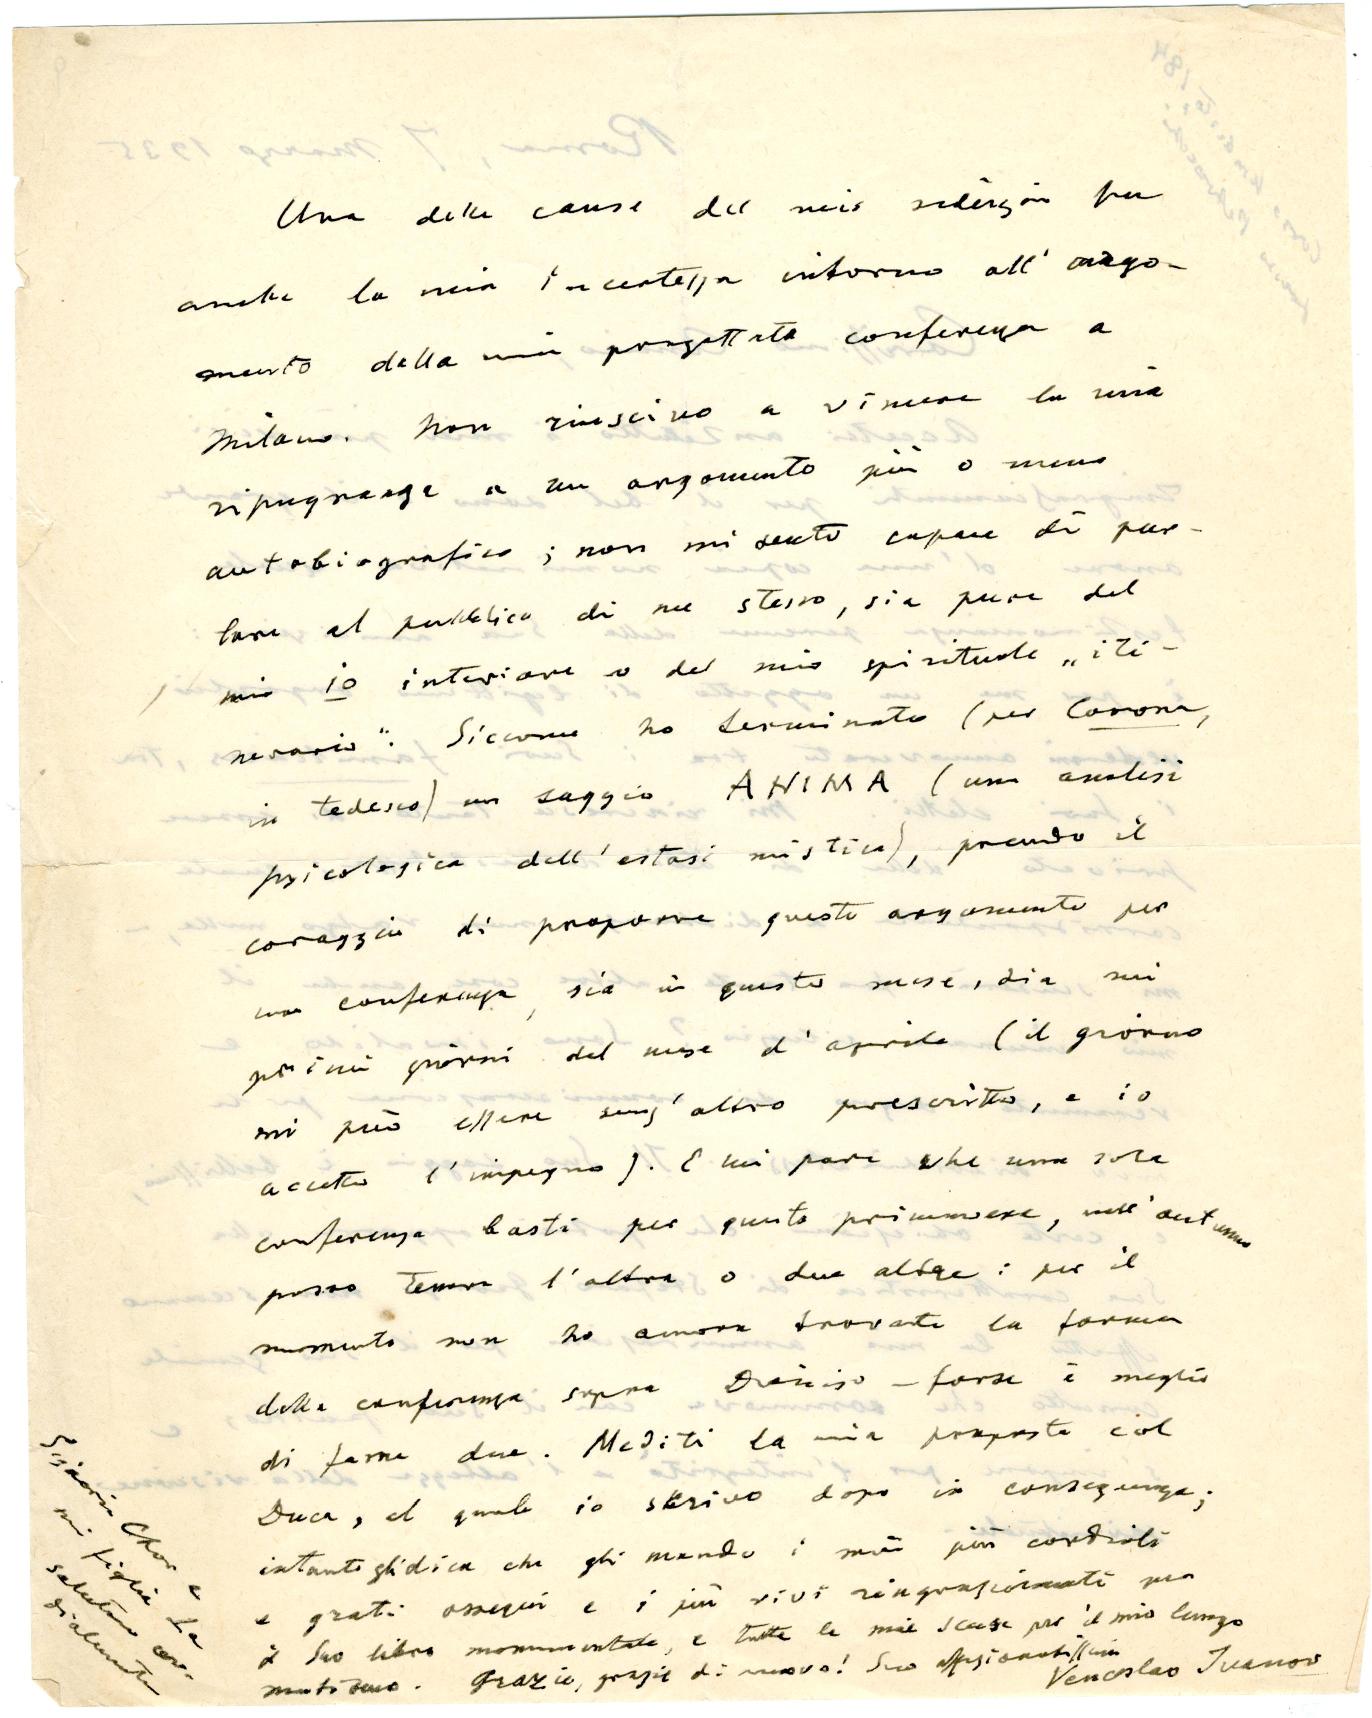 Una delle cause del mio silenzio fu
anche la mia incertezza intorno all'argo-
mento della mia progettata conferenza a
Milano. Non riuscivo a vincere la mia
ripugnanza a un argomento più o meno
autobiografico; non mi sento capace di par-
lare al pubblico di me stesso, sia pure del
mio io interiore o del mio spirituale „iti-
nerario“. Siccome ho terminato (per Corona,
in tedesco) un saggio ANIMA (una analisi
psicologica dell'estasi mistica), prendo il
coraggio di proporre questo argomento per
una conferenza, sia in questo mese, sia nei
primi giorni del mese d'aprile (il giorno
mi può essere senz'altro prescritto, e io
accetto l'impegno). E mi pare che una sola
conferenza basti per questa primavera, nell'autunno
posso tenere l'altra o due altre: per il
momento non ho ancora trovata la forma
della conferenza sopra Dioniso – forse è meglio
di farne due. Mediti la mia proposta col
Duca, al quale io scrivo dopo in conseguenza;
intanto gli dica che gli mando i miei più cordiali
e grati ossequi e i più vivi ringraziamenti per
il Suo libro monumentale, e tutte le mie scuse per il mio lungo
mutismo. Grazie, grazie di nuovo! Suo affezionatissimo
Venceslao Ivanov
Signorina Chor e
mi figlia La
salutano cor-
dialmente
Roma, 7 Marzo 1935